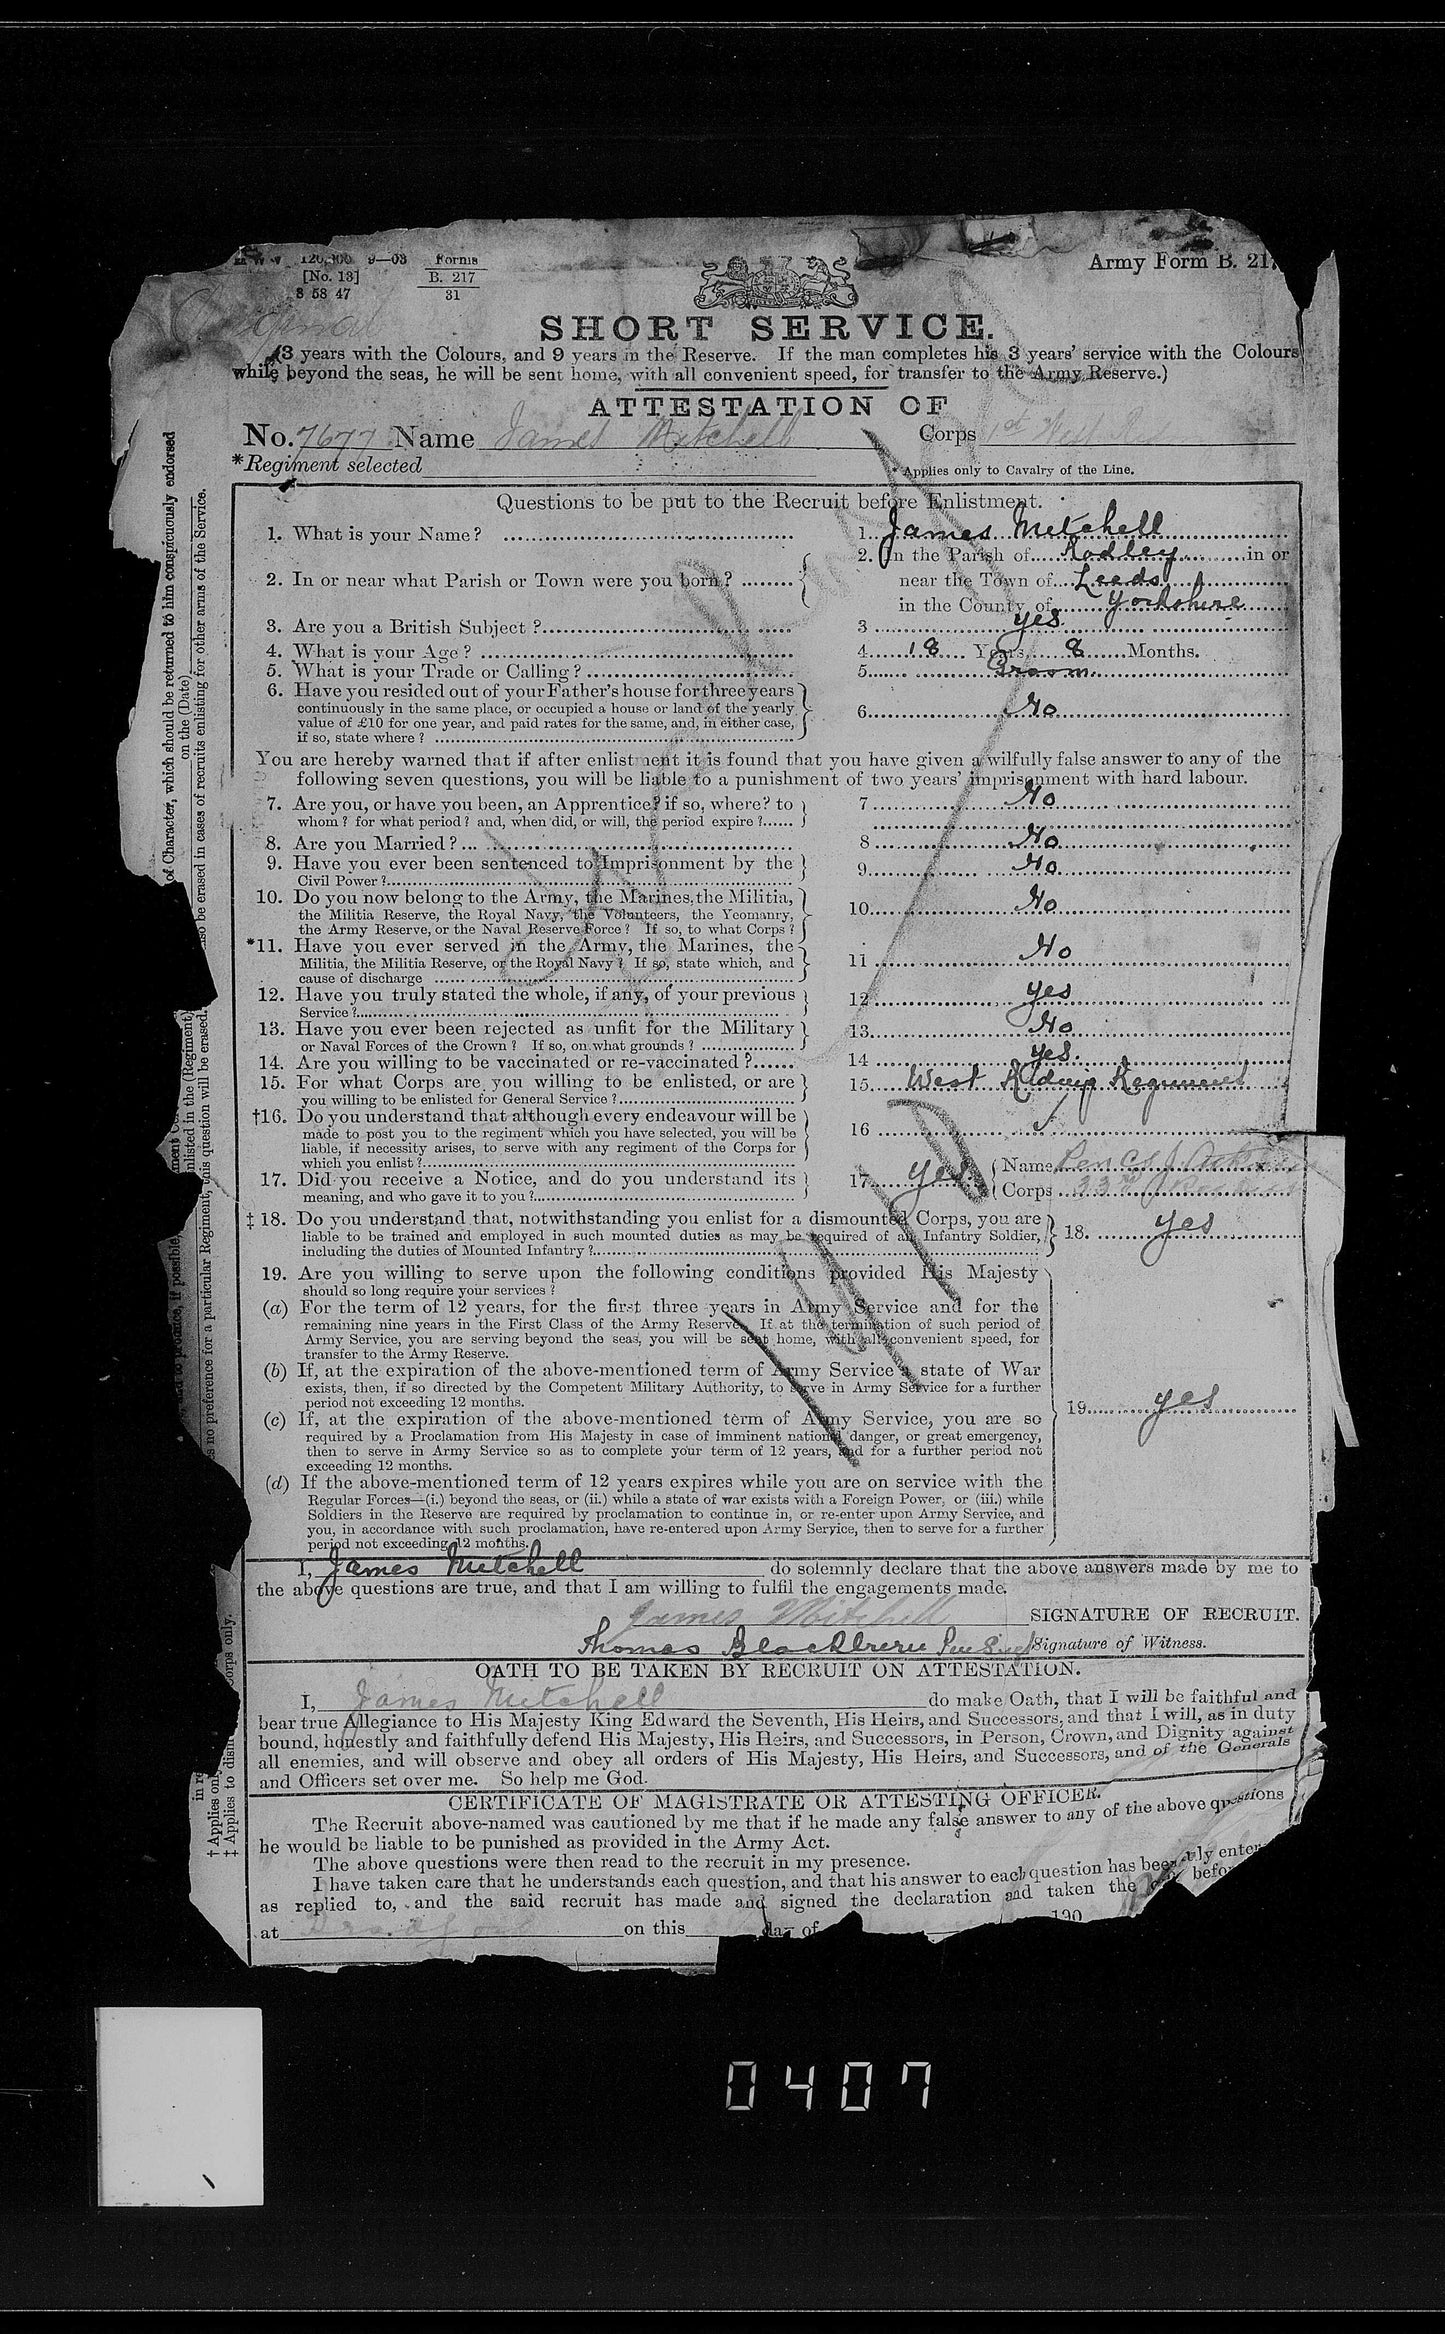 120,000 9—03 Forms
[No. 13] B. 217
8 58 47 31
Army Form B. 21
Original
SHORT SERVICE.
(3 years with the Colours, and 9 years in the Reserve. If the man completes his 3 years' service with the Colours
while beyond the seas, he will be sent home, with all convenient speed, for transfer to the Army Reserve.)
ATTESTATION OF
No. 7677 Name James Mitchell Corps
*Regiment selected * Applies only to Cavalry of the Line.
Questions to be put to the Recruit before Enlistment.
1. What is your Name? 1. James Mitchell
2. In or near what Parish or Town were you born? 2. In the Parish of Rodley in or
near the Town of Leeds
in the County of Yorkshire
3. Are you a British Subject? 3 yes
4. What is your Age? 4 18 Years 8 Months.
5. What is your Trade or Calling? 5 Groom
6. Have you resided out of your Father's house for three years
continuously in the same place, or occupied a house or land of the yearly
value of £10 for one year, and paid rates for the same, and, in either case,
if so, state where? 6 No
You are hereby warned that if after enlistment it is found that you have given a wilfully false answer to any of the
following seven questions, you will be liable to a punishment of two years' imprisonment with hard labour.
7. Are you, or have you been, an Apprentice? if so, where? to 7 No
whom? for what period? and, when did, or will, the period expire?
8. Are you Married? 8 No
9. Have you ever been sentenced to Imprisonment by the
Civil Power? 9 No
10. Do you now belong to the Army, the Marines, the Militia,
the Militia Reserve, the Royal Navy, the Volunteers, the Yeomanry,
the Army Reserve, or the Naval Reserve Force? If so, to what Corps? 10 No
*11. Have you ever served in the Army, the Marines, the
Militia, the Militia Reserve, or the Royal Navy? If so, state which, and
cause of discharge 11 No
12. Have you truly stated the whole, if any, of your previous
Service? 12 yes
13. Have you ever been rejected as unfit for the Military
or Naval Forces of the Crown? If so, on what grounds? 13 No
14. Are you willing to be vaccinated or re-vaccinated? 14 yes.
15. For what Corps are you willing to be enlisted, or are
you willing to be enlisted for General Service? 15 West Riding Regiment
†16. Do you understand that although every endeavour will be
made to post you to the regiment which you have selected, you will be
liable, if necessity arises, to serve with any regiment of the Corps for
which you enlist? 16
17. Did you receive a Notice, and do you understand its 17 yes Name
meaning, and who gave it to you? Corps
‡ 18. Do you understand that, notwithstanding you enlist for a dismounted Corps, you are
liable to be trained and employed in such mounted duties as may be required of an Infantry Soldier,
including the duties of Mounted Infantry? 18. yes
19. Are you willing to serve upon the following conditions provided His Majesty
should so long require your services?
(a) For the term of 12 years, for the first three years in Army Service and for the
remaining nine years in the First Class of the Army Reserve. If at the termination of such period of
Army Service, you are serving beyond the seas, you will be sent home, with all convenient speed, for
transfer to the Army Reserve.
(b) If, at the expiration of the above-mentioned term of Army Service a state of War
exists, then, if so directed by the Competent Military Authority, to serve in Army Service for a further
period not exceeding 12 months. 19 yes
(c) If, at the expiration of the above-mentioned term of Army Service, you are so
required by a Proclamation from His Majesty in case of imminent national danger, or great emergency,
then to serve in Army Service so as to complete your term of 12 years, and for a further period not
exceeding 12 months.
(d) If the above-mentioned term of 12 years expires while you are on service with the
Regular Forces—(i.) beyond the seas, or (ii.) while a state of war exists with a Foreign Power, or (iii.) while
Soldiers in the Reserve are required by proclamation to continue in, or re-enter upon Army Service, and
you, in accordance with such proclamation, have re-entered upon Army Service, then to serve for a further
period not exceeding 12 months.
I, James Mitchell do solemnly declare that the above answers made by me to
the above questions are true, and that I am willing to fulfil the engagements made.
James Mitchell SIGNATURE OF RECRUIT.
Thomas Signature of Witness.
OATH TO BE TAKEN BY RECRUIT ON ATTESTATION.
I, James Mitchell do make Oath, that I will be faithful and
bear true Allegiance to His Majesty King Edward the Seventh, His Heirs, and Successors, and that I will, as in duty
bound, honestly and faithfully defend His Majesty, His Heirs, and Successors, in Person, Crown, and Dignity against
all enemies, and will observe and obey all orders of His Majesty, His Heirs, and Successors, and of the Generals
and Officers set over me. So help me God.
CERTIFICATE OF MAGISTRATE OR ATTESTING OFFICER.
The Recruit above-named was cautioned by me that if he made any false answer to any of the above questions
he would be liable to be punished as provided in the Army Act.
The above questions were then read to the recruit in my presence.
I have taken care that he understands each question, and that his answer to each question has been duly enter
as replied to, and the said recruit has made and signed the declaration and taken the befor
at Bradford on this day of 190
of Character, which should be returned to him conspicuously endorsed
on the (Date)
be erased in cases of recruits enlisting for other arms of the Service.
nlisted in the (Regiment)
s no preference for a particular Regiment, this question will be erased.
† Applies only
‡ Applies to dism
Corps only.
0407